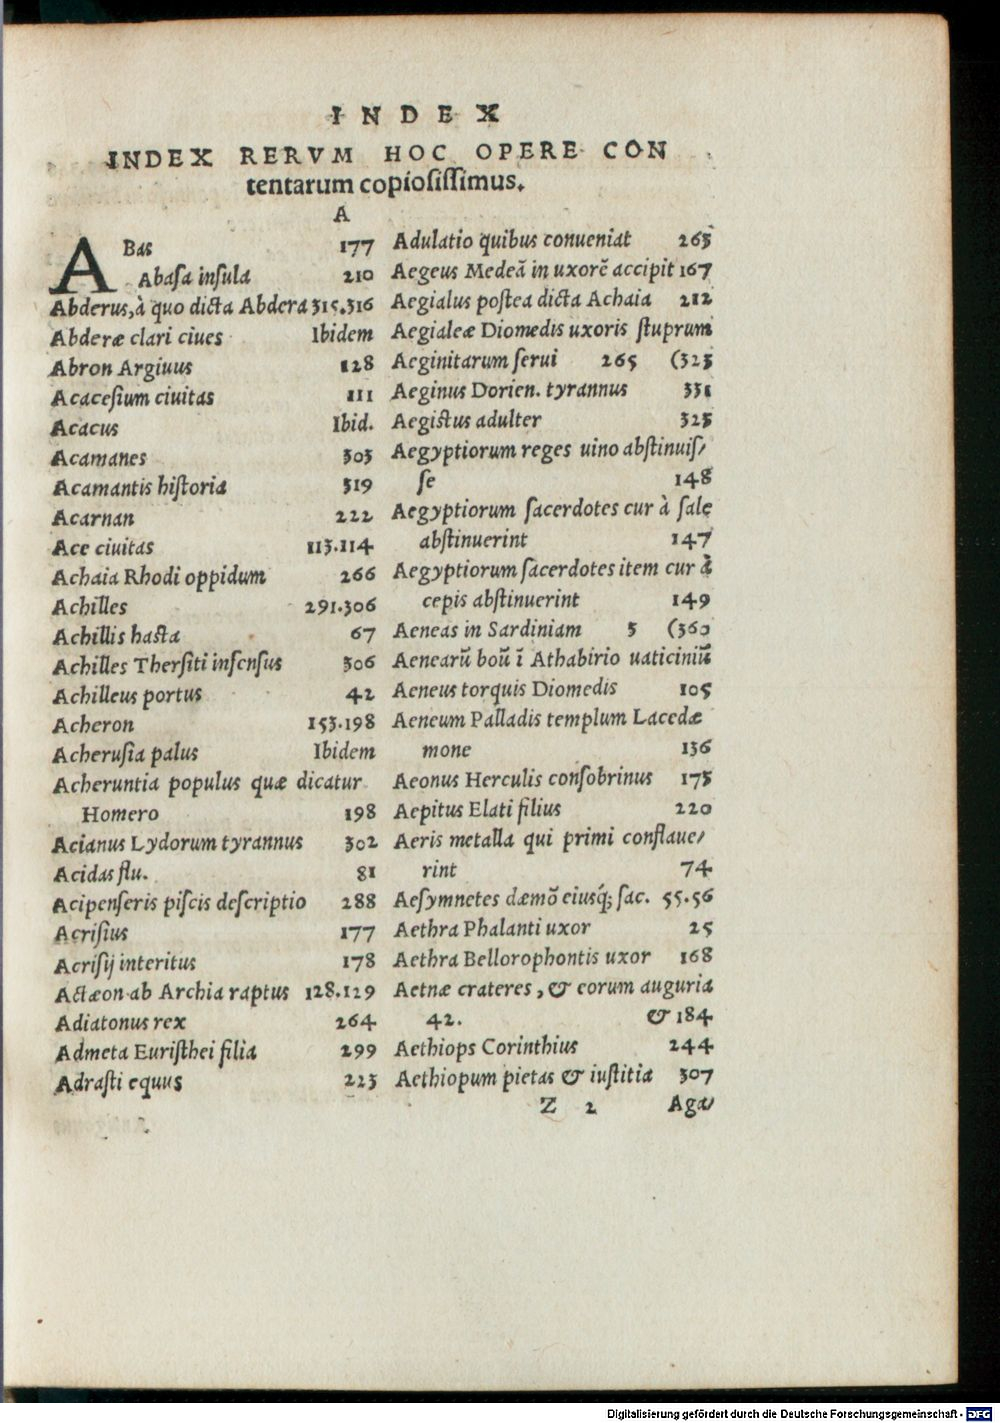 INDEX
INDEX RERVM HOC OPERE CON
tentarum copiosissimus.
A
ABas 177
Abasa insula 210
Abderus, à quo dicta Abdera 315.316
Abderæ clari ciues Ibidem
Abron Argiuus 128
Acacesium ciuitas 111
Acacus Ibid.
Acamanes 303
Acamantis historia 319
Acarnan 222
Ace ciuitas 113.114
Achaia Rhodi oppidum 266
Achilles 291.306
Achillis hasta 67
Achilles Thersiti insensus 306
Achilleus portus 42
Acheron 153.198
Acherusia palus Ibidem
Acheruntia populus quæ dicatur
Homero 198
Acianus Lydorum tyrannus 302
Acidas flu. 81
Acipenseris piscis descriptio 288
Acrisius 177
Acrisij interitus 178
Actæon ab Archia raptus 128.129
Adiatonus rex 264
Admeta Euristhei filia 299
Adrasti equus 223
Adulatio quibus conueniat 265
Aegeus Medeā in uxorē accipit 167
Aegialus postea dicta Achaia 212
Aegialeæ Diomedis uxoris stuprum
Aeginitarum serui 265 (323
Aeginus Dorien. tyrannus 331
Aegistus adulter 325
Aegyptiorum reges uino abstinuis/
se 148
Aegyptiorum sacerdotes cur à sale
abstinuerint 147
Aegyptiorum sacerdotes item cur à
cepis abstinuerint 149
Aeneas in Sardiniam 5 (360
Aenearū boū ī Athabirio uaticiniū
Aeneus torquis Diomedis 105
Aeneum Palladis templum Lacedæ
mone 136
Aeonus Herculis consobrinus 175
Aepitus Elati filius 220
Aeris metalla qui primi conflaue/
rint 74
Aesymnetes dæmō eiusq́; sac. 55.56
Aethra Phalanti uxor 25
Aethra Bellorophontis uxor 168
Aetnæ crateres, & eorum auguria
42. & 184
Aethiops Corinthius 244
Aethiopum pietas & iustitia 307
Z 2 Aga/
Digitalisierung gefördert durch die Deutsche Forschungsgemeinschaft - DFG